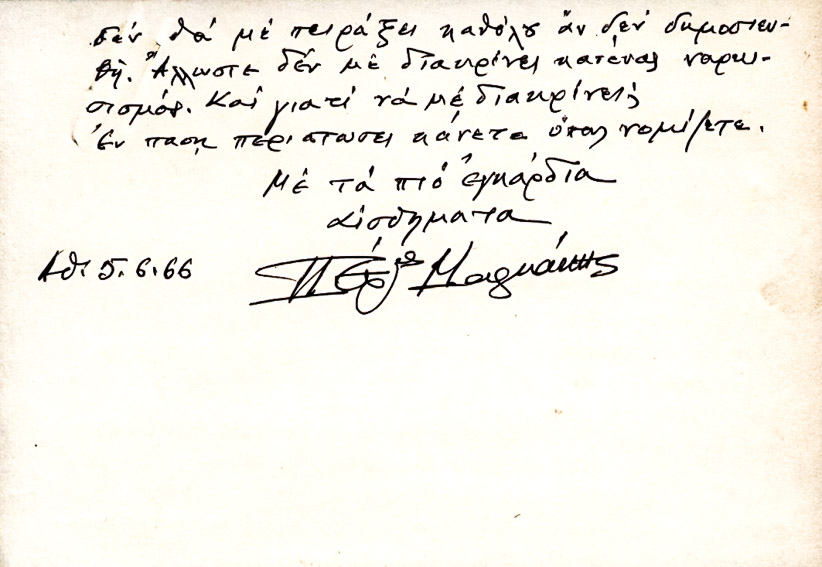 δέν θά μέ πειράξει καθόλου ἄν δέν δημοσιευ-
θῆ. Ἄλλωστε δέν μέ διακρίνει κανένας ναρκι-
σισμός. Καί γιατί νά μέ διακρίνει;
Ἐν πάσῃ περιπτώσει κάνετε ὅπως νομίζετε.
Μέ τά πιό ἐγκάρδια
αἰσθήματα
Ἀθ. 5.6.66